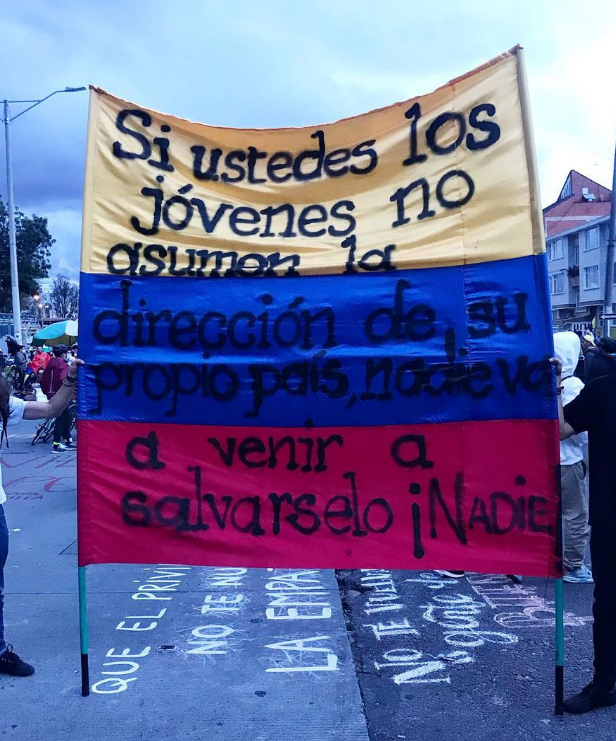 Si ustedes los
jóvenes no
asumen la
dirección de su
propio país, nadie va
a venir a
salvarselo ¡NADIE
QUE EL PRIVI
NO TE NU
LA EMPA
LA
NO TE